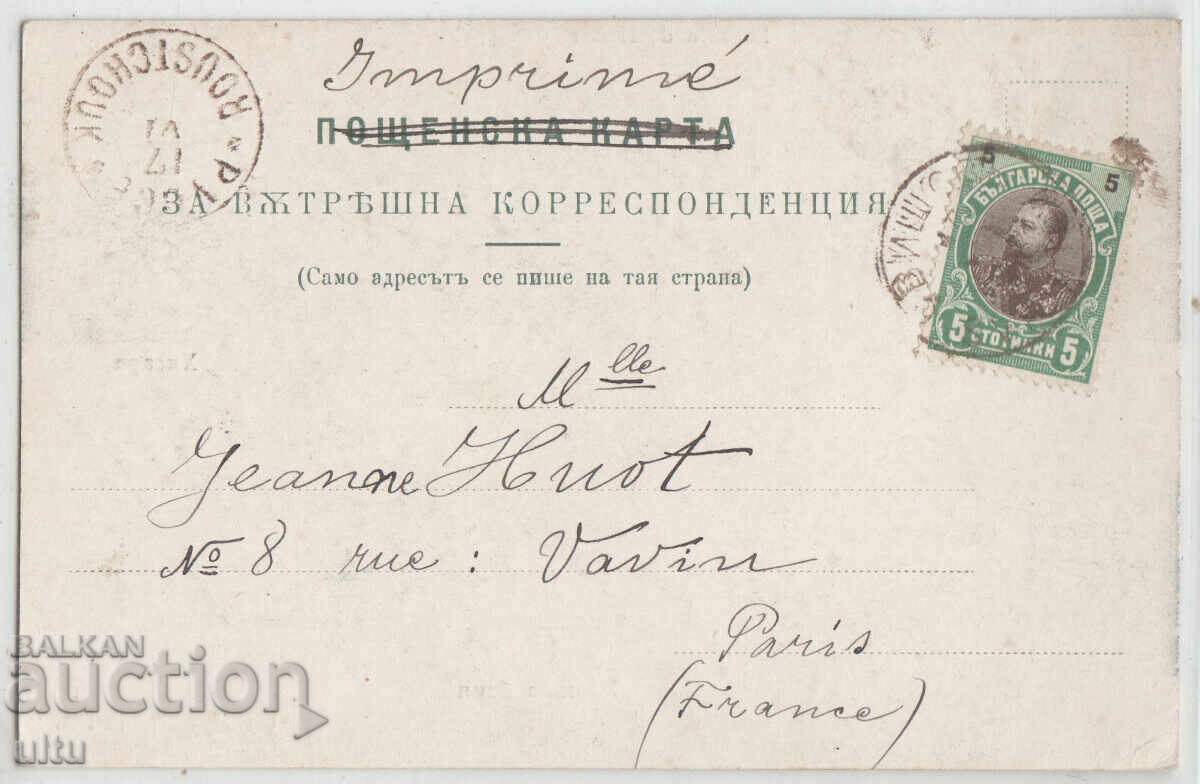 Imprimé
ПОЩЕНСКА КАРТА
ЗА ВѪТРѢШНА КОРРЕСПОНДЕНЦИЯ
(Само адресътъ се пише на тая страна)
ROUSTCHOUK
VI
17
5 5
БЪЛГАРСКА ПОЩА
5 СТОТИНКИ 5
Mlle
Jeanne Huot
No 8 rue : Vavin
Paris
(France)
BALKAN
auction
ultu